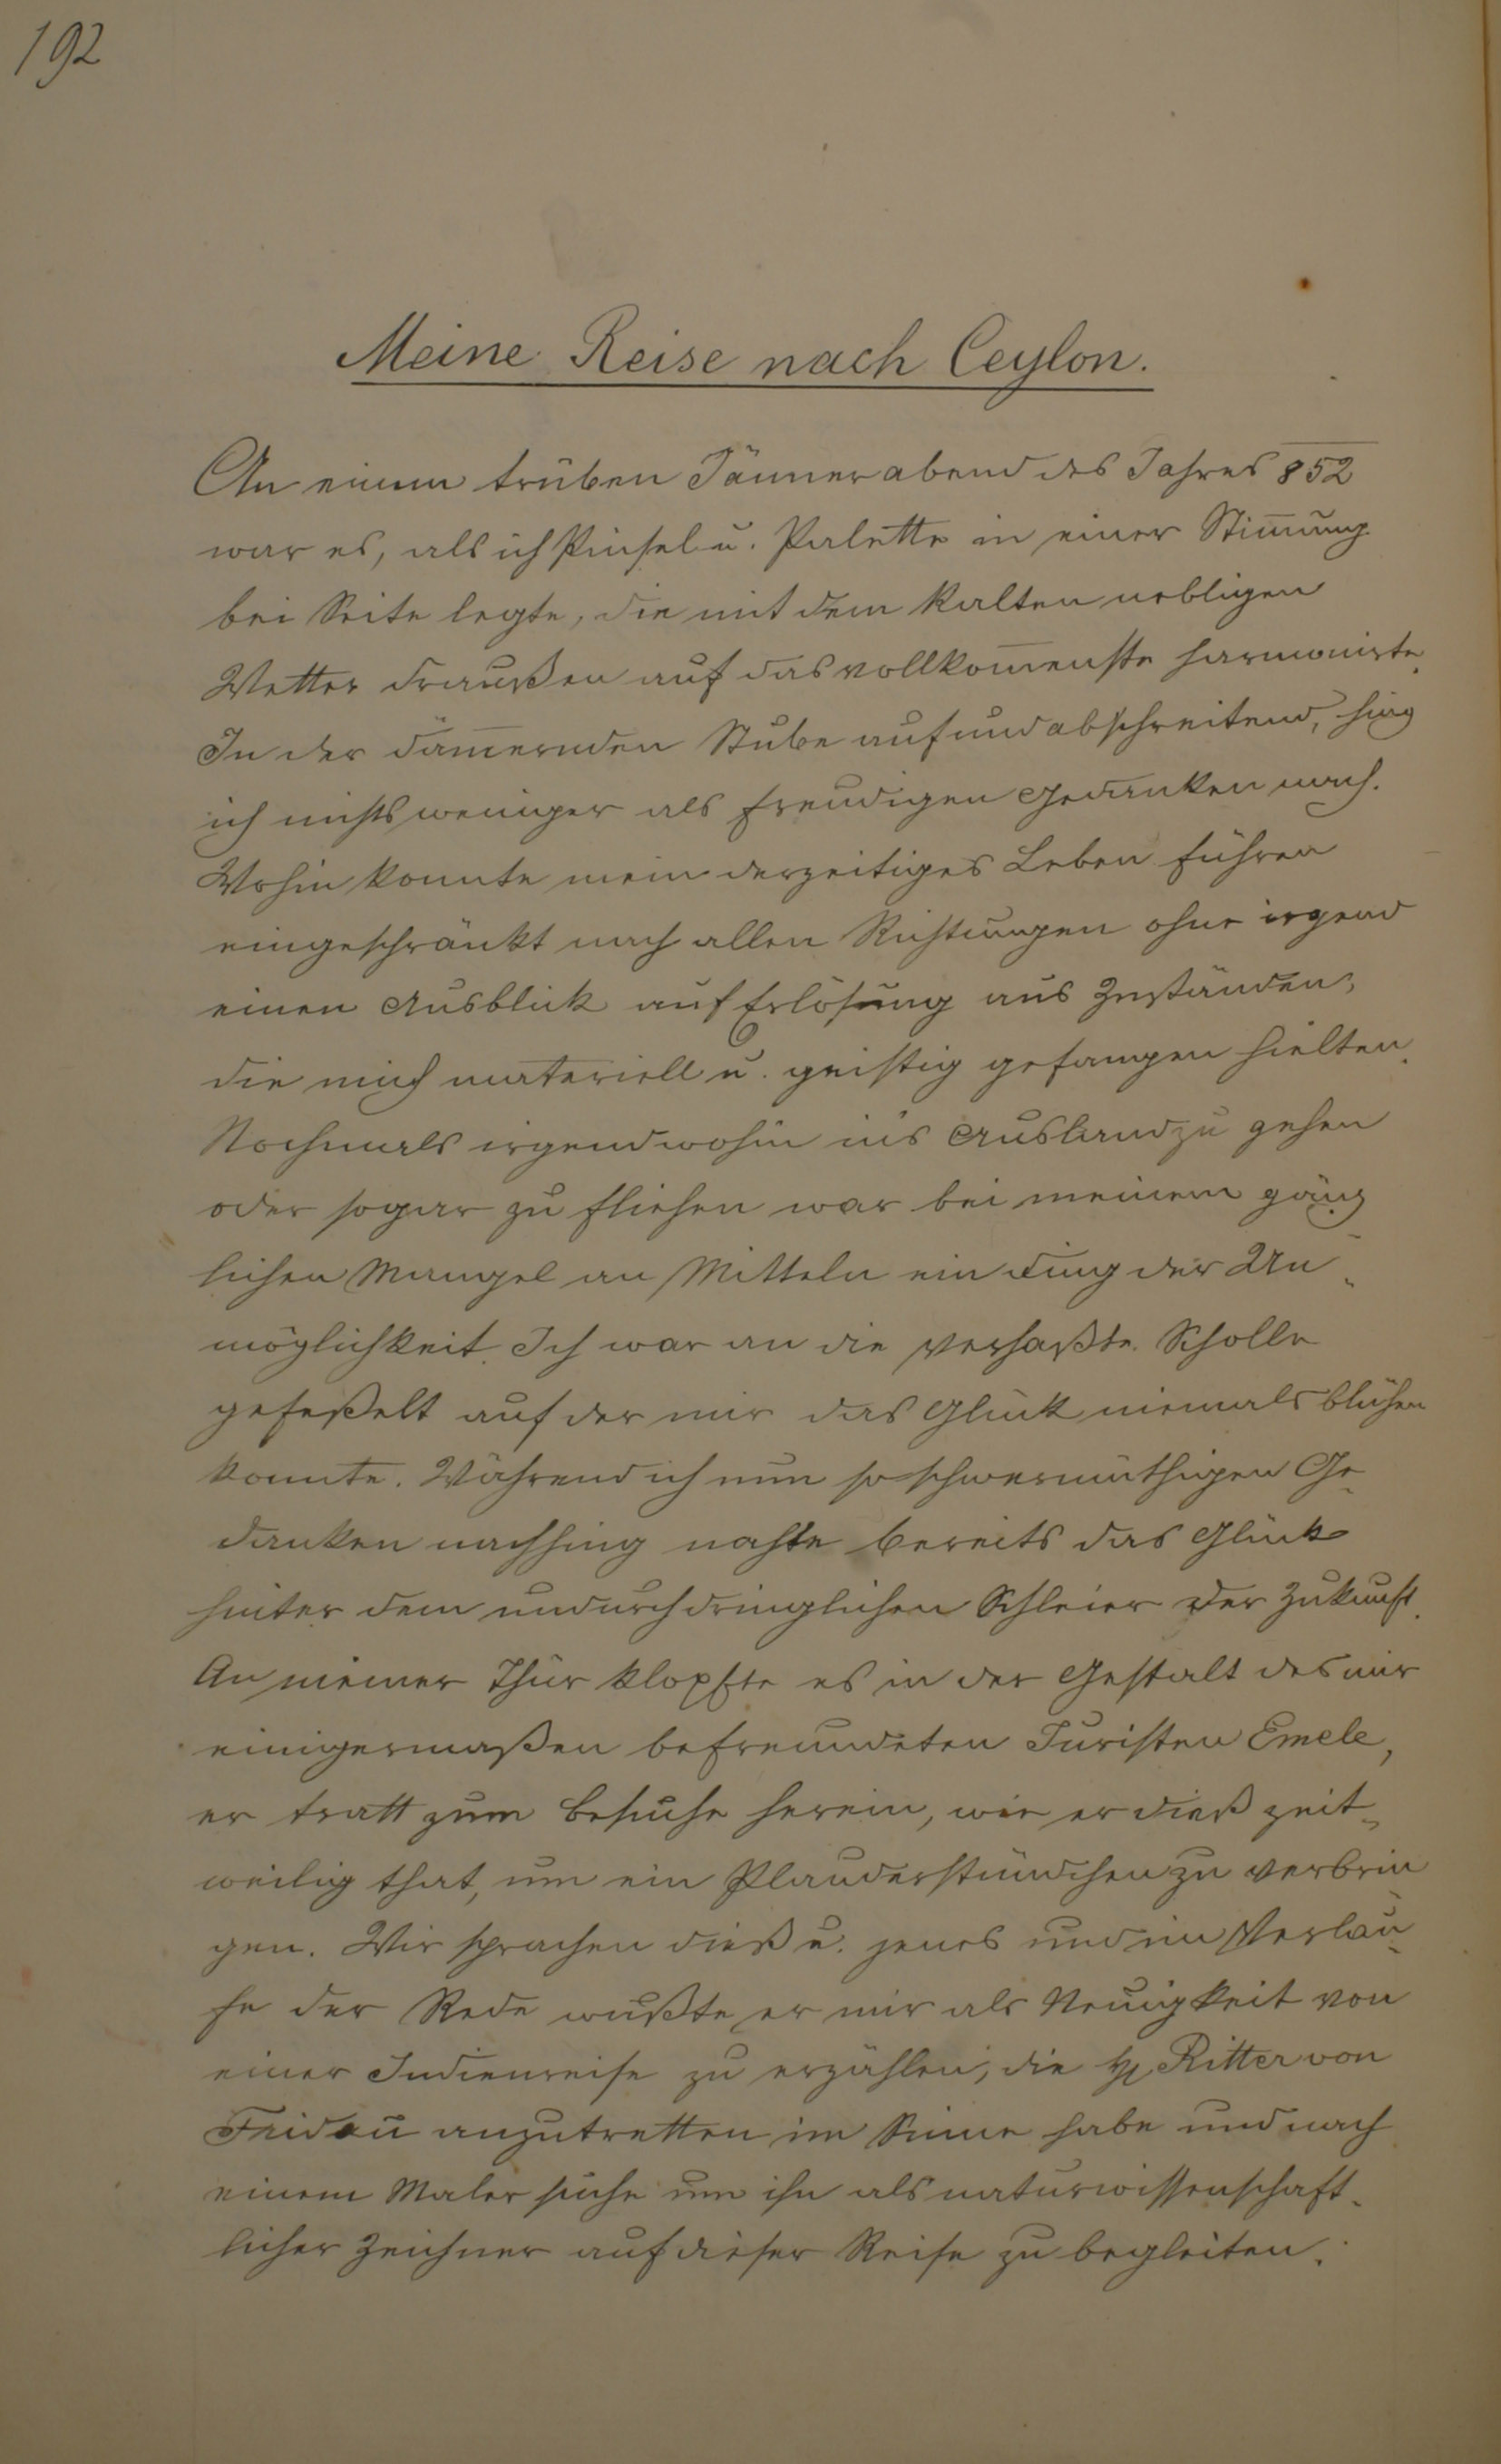 192
Meine Reise nach Ceylon.
An einem trüben Jännerabend des Jahres 852
war es, als ich Pinsel u. Palette in einer Stim̅ung
bei Seite legte, die mit dem kalten nebligen
Wetter draußen auf das vollkom̅enste harmonirte.
In der däm̅ernden Stube auf und abschreitend, hing
ich nichts weniger als freudigen Gedanken nach.
Wohin konnte mein derzeitiges Leben führen
eingeschränkt nach allen Richtungen ohne irgend
einen Ausblick auf Erlösung aus Zuständen,
die mich materiell u. geistig gefangen hielten.
Nochmals irgendwohin in's Ausland zu gehen
oder sogar zu fliehen war bei meinem gänz-
lichen Mangel an Mitteln ein Ding der Un-
möglichkeit. Ich war an die verhaßte Scholle
gefeßelt auf der mir das Glück niemals blühen
konnte. Während ich nun so schwermüthigen Ge-
danken nachhing nahte bereits das Glück
hinter dem undurchdringlichen Schleier der Zukunft.
An meiner Thür klopfte es in der Gestalt des mir
einigermaßen befreundeten Juristen Emele,
er tratt zum Besuche herein, wie er dieß zeit-
weilig that, um ein Plauderstündchen zu verbrin
gen. Wir sprachen dieß u. jenes und im Verlau-
fe der Rede wußte er mir als Neuigkeit von
einer Indienreise zu erzählen, die H. Ritter von
Fridau anzutretten im Sinne habe und nach
einem Maler suche um ihn als naturwissenschaft-
licher Zeichner auf dieser Reise zu begleiten.